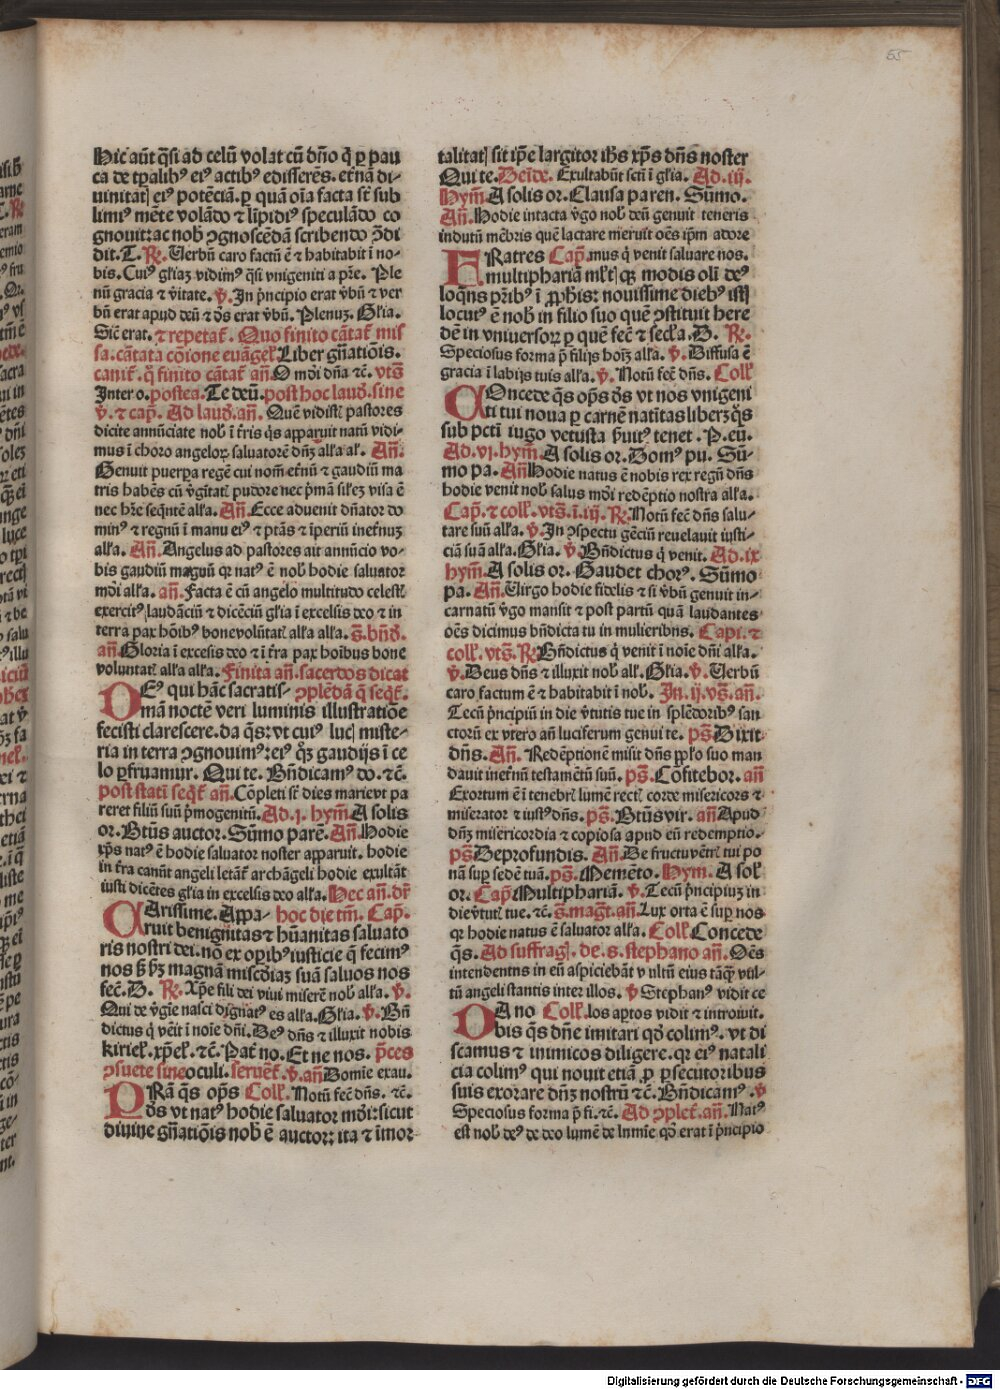 55
Hic aūt q̄si ad celū volat cū dn̄o q̄ ꝑ pau
ca de tꝑalibꝰ eiꝰ actibꝰ edisserēs. et̄nā di-
uinitatꝭ eiꝰ potēciā. ꝑ quā oīa facta st̄ sub
limiꝰ mēte volādo ⁊ līpidiꝰ speculādo co
gnouit: ac nob̄ ꝯgnoscēdā scribendo ꝓdi
dit. T. R̄. Uerbū caro factū ē ⁊ habitabit ī no-
bis. Cuiꝰ gl'iaꝫ vidimꝰ q̄si vnigeniti a pr̄e. Ple
nū gracia ⁊ v̄itate. v̄. In p̄ncipio erat v̄bū ⁊ ver
bū erat apud deū ⁊ dꝰs erat v̄bū. Plenuꝫ. Gl'ia.
Sic̄ erat. ⁊ repetat᷑. Quo finito cātat᷑ mis
sa. cātata cōione euāgel'. Liber gn̄atiōis.
canit᷑. q̄ finito cātat᷑ an̄. O mōi dn̄a ⁊c̄. vts̄
Inter o. postea. Te deū. post hoc laud'. sine
v̄. ⁊ cap̄. Ad laud'. an̄. Quē vidistꝭ pastores
dicite annūciate nob̄ ī t̄ris q̄s apparuit natū vidi-
mus ī choro angeloꝝ saluatorē dn̄ꝫ al'la al'. An̄.
Genuit puerꝑa regē cui nom̄ et̄nū ⁊ gaudiū ma
tris habēs cū v̄gītatꝭ pudore nec p̄mā sil'eꝫ visa ē
nec hr̄e seq̄ntē al'la. An̄. Ecce aduenit dn̄ator do
minꝰ ⁊ regnū ī manu eiꝰ ⁊ ptās ⁊ īperiū inet̄nuꝫ
al'la. An̄. Angelus ad pastores ait annūcio vo-
bis gaudiū magnū qꝛ natꝰ ē nob̄ hodie saluator
mōi al'la. an̄. Facta ē cū angelo multitudo celestꝭ
exercitꝰ laudāciū ⁊ dicēciū gl'ia ī excelsis deo ⁊ in
terra pax hōibꝰ bonevolūtatꝭ al'la al'la. s̄. bn̄d'.
an̄ Gloria ī excelsis deo ⁊ ī t̄ra pax hoībus bone
voluntatꝭ al'la al'la. Finita an̄. sacerdos dicat
DEꝰ qui hāc sacratis- ꝯplēdā q̄ seq̄t᷑.
omā noctē veri luminis illustratiōe
fecisti clarescere. da q̄s: vt cuiꝰ lucꝭ miste-
ria in terra ꝯgnouimꝰ: eiꝰ q̄ꝫ gaudijs ī ce
lo ꝑfruamur. Qui te. Bn̄dicamꝰ do. ⁊c̄.
post statī seq̄t᷑ an̄. Cōpleti st̄ dies marievt pa
reret filiū suū p̄mogenitū. Ad. j. hym̄ A solis
or. Btūs auctor. Sūmo parē. An̄. Hodie
xp̄s natꝰ ē hodie saluator noster apparuit. hodie
in t̄ra canūt angeli letāt᷑ archāgeli hodie exultāt
iusti dicētes gl'ia in excelsis deo al'la. Hec an̄. dr̄
CArissime. Appa- hoc die tm̄. Cap̄.
ruit benignitas ⁊ hūanitas saluato
ris nostri dei. nō ex oꝑibꝰ iusticie q̄ fecimꝰ
nos s̄ ẜꝫ magnā misc̄diaꝫ suā saluos nos
fec̄. D. R̄. Xp̄e fili dei viui miserē nob̄ al'la. v̄.
Qui de v̄gīe nasci dignatꝰ es al'la. Gl'ia. v̄. Bn̄
dictus q̄ vēit ī noīe dn̄i. Deꝰ dn̄s ⁊ illuxit nobis
kiriel'. xp̄el'. ⁊c̄. Pat̄ no. Et ne nos. p̄ces
ꝯsuete sineoculi. seruet᷑. v̄. an̄ Domīe exau.
PRā q̄s op̄s Coll'. Notū fec̄ dn̄s. ⁊c̄.
dꝰs vt natꝰ hodie saluator mōi: sicut
diuine gn̄atiōis nob̄ ē auctor: ita ⁊ īmor
talitatꝭ sit ip̄e largitor ih̄s xp̄s dn̄s noster
Qui te. Beīde. Exultabūt sc̄ti ī gl'ia. Ad. iij.
Hym̄. A solis or. Clausa paren. Sūmo.
An̄. Hodie intacta v̄go nob̄ deū genuit teneris
indutū mēbris quē lactare meruit oēs ip̄m adore
FRatres Cap̄. mus q̄ venit saluare nos.
multiphariā ml'tꝭqꝫ modis olī deꝰ
loq̄ns pr̄ibꝰ ī ꝓph̄is: nouissime diebꝰ istꝭ
locutꝰ ē nob̄ in filio suo quē ꝯstituit here
dē in vniuersoꝝ ꝑ quē fec̄ ⁊ secl'a. D. R̄.
Speciosus forma p̄ filijs hoīꝫ al'la. v̄. Diffusa ē
gracia ī labijs tuis al'la. v̄. Notū fec̄ dn̄s. Coll'
COncede q̄s op̄s dꝰs vt nos vnigeni
ti tui noua ꝑ carnē natītas liberꝫ q̄s
sub pctī iugo vetusta ẜuitꝰ tenet. P. eū.
Ad. vj. hym̄. A solis or. Domꝰ pu. Sū-
mo pa. An̄ Hodie natus ē nobis rex regū dn̄s
hodie venit nob̄ salus mōi redēptio nostra al'la.
Cap̄. ⁊ coll'. vts̄. ī. iij. R̄. Notū fec̄ dn̄s salu-
tare suū al'la. v̄. In ꝯspectu gēciū reuelauit iusti-
ciā suā al'la. Gl'ia. v̄. Bn̄dictus q̄ venit. Ad. ix
hym̄. A solis or. Gaudet chorꝰ. Sūmo
pa. An̄. Uirgo hodie fidelis ⁊ si v̄bū genuit in-
carnatū v̄go mansit ⁊ post partū quā laudantes
oēs dicimus bn̄dicta tu in mulieribns. Capi. ⁊
coll'. vts̄. R̄. Bn̄dictus q̄ venit ī noīe dn̄i al'la.
v̄. Deus dn̄s ⁊ illuxit nob̄ al'l. Gl'ia. v̄. Uerbū
caro factum ē ⁊ habitabit ī nob̄. In. ij. vs̄. an̄.
Tecū p̄ncipiū in die v̄tutis tue in splēdoribꝰ san
ctorū ex vtero an̄ luciferum genui te. ps̄. Dixit
dn̄s. An̄. Redēptionē misit dn̄s pp̄lo suo man
dauit inet̄nū testamētū suū. ps̄. Cōfitebor. an̄
Exortum ē ī tenebrꝭ lumē rectꝭ corde misericors ⁊
miserator ⁊ iustꝰ dn̄s. ps̄. Btūs vir. an̄ Apud
dn̄ꝫ misericordia ⁊ copiosa apud eū redemptio.
ps̄ Deprofundis. An̄. De fructu vētrꝭ tui po
nā suꝑ sedē tuā. ps̄. Memēto. Hym̄. A sol'
or. Cap̄ Multiphariā. v̄. Tecū p̄ncipiuꝫ in
diev̄tutꝭ tue. ⁊c̄. s̄. mag̅t. an̄. Lux orta ē suꝑ nos
qꝛ hodie natus ē saluator al'la. Coll'. Concede
q̄s. Ad suffragꝭ. de. s. stephano an̄. Oēs
intendentns in eū aspiciebāt vultū eius tāq̄ vul-
tū angeli stantis inter illos. v̄ Stephanꝰ vidit ce
DA no Coll'. los aꝑtos vidit ⁊ introiuit.
bis q̄s dn̄e imitari qꝰ colimꝰ. vt di
scamus ⁊ inimicos diligere. qꝛ eiꝰ natali
cia colimꝰ qui nouit etiā ꝓ ꝑsecutoribus
suis exorare dn̄ꝫ nostrū ⁊c̄. Bn̄dicamꝰ. v̄
Speciosus forma p̄ fi. ⁊c̄. Ad ꝯplet᷑. an̄. Natꝰ
est nob̄ deꝰ de deo lumē de lnmīe qꝰ erat ī p̄ncipio
Digitalisierung gefördert durch die Deutsche Forschungsgemeinschaft - DFG